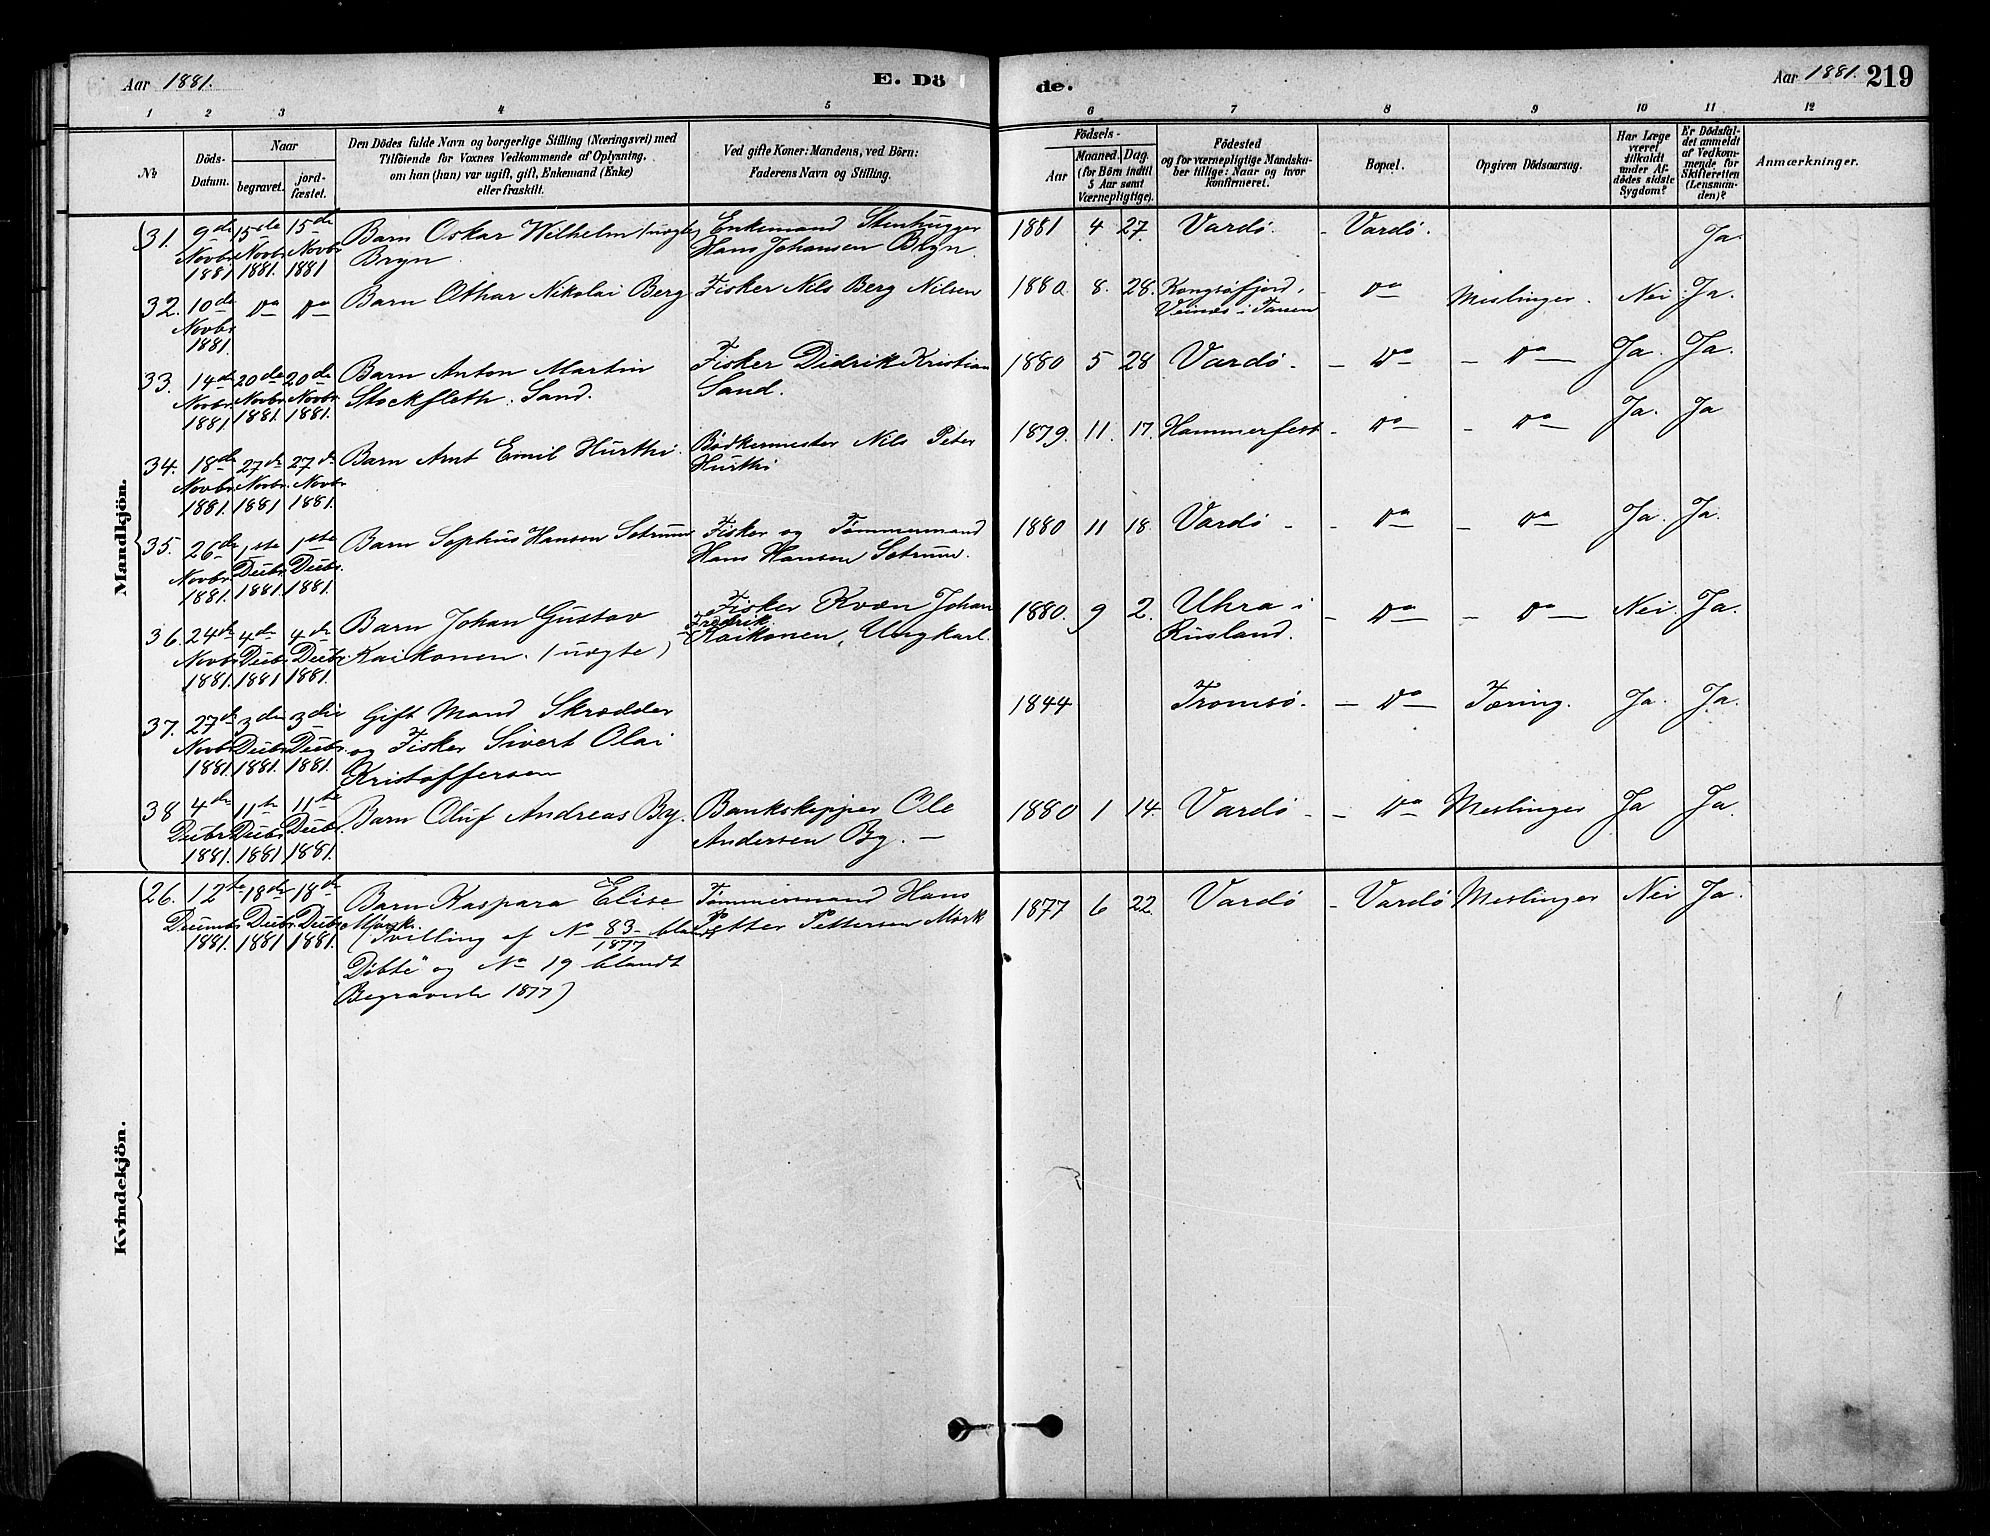 Aar 1881. E. Dö
de. Aar 1881. 219
1 2 3 4 5 6 7 8 9 10 11 12
№
Döds-
Datum.
Naar
begravet.
jord-
fæstet.
Den Dödes fulde Navn og borgerlige Stilling (Næringsvei) med
Tilföiende for Voxnes Vedkommende af Oplysning.
om han (hun) var ugift, gift, Enkemand (Enke)
eller fraskilt.
Ved gifte Koner: Mandens, ved Börn:
Faderens Navn og Stilling.
Födsels-
Aar
Maaned. Dag.
(for Börn indtil
5 Aar samt
Værnepligtige).
Födested
og for værnepligtige Mandska-
ber tillige: Naar og hvor
konfirmeret.
Bopæl.
Opgiven Dödsaarsag.
Har Læge
været
tilkaldt
under Af-
dödes sidste
Sygdom?
Er Dödsfal-
det anmeldt
af Vedkom-
mende for
Skifteretten
(Lensman-
den)?
Anmærkninger.
Mandkjön.
31. 9de Novbr 1881 15de Novbr 1881. 15de Novbr 1881 Barn Oskar Wilhelm (uægte) Enkemand Stenhugger 1881 4 27. Vardö. - Vardö. Ja.
Bryn. Hans Johansen Bryn.
32. 10de Novbr 1881. Do Do Barn Othar Nikolai Berg Fisker Nils Berg Nilsen 1880. 8. 28. Kongsöfjord, - Do Meslinger. Nei. Ja.
Veinæs i Tanen
33. 14de Novbr 1881 20de Novbr. 1881. 20de Novbr. 1881. Barn Anton Martin Fisker Didrik Kristian 1880 5 28 Vardö - - Do - - Do - Ja. Ja.
Stockfleth Sand. Sand.
34. 18de Novbr 1881. 27de Novbr. 1881 27de Novbr 1881. Barn Arnt Emil Hurthi. Bödkermester Nils Peter 1879. 11. 17. Hammerfest - Do - - Do - Ja. Ja
Hurthi
35. 26de Novbr. 1881. 1ste Decbr. 1881. 1ste Decbr. 1881. Barn Sophus Hansen Sætrum Fisker og Tömmermand 1880 11 18. Vardö - - Do - - Do - Ja. Ja.
Hans Hansen Sætrum.
36. 24de Novbr 1881. 4de Decbr. 1881 4de Decbr. 1881. Barn Johan Gustav Fisker Kvæn Johan 1880. 9 2. Uhra i - Do - - Do - Nei. Ja.
Kaikonen. (uægte) Fredrik Kaikonen, Ungkarl. Rusland.
37. 27de Novbr 1881. 3die Decbr. 1881. 3die Decbr. 1881. Gift Mand Skrædder 1844 Tromsö. - Do - Tæring. Ja. Ja.
og Fisker Sivert Olai
Kristoffersen
38 4de Decbr 1881. 11te Decbr. 1881 11te Decbr. 1881. Barn Oluf Andreas By. Bankskipper Ole 1880 1 14. Vardö - - Do - Meslinger Ja Ja.
Andersen By. -
Kvindekjön.
26. 12te Decembr 1881. 18de Decbr. 1881 18de Decbr. 1881. Barn Kaspara Elise Tømmermand Hans 1877 6 22. Vardö - Vardö Meslinger Nei Ja.
Mørk. Petter Pettersen Mørk
(Tvilling af No 83/1877 blandt
Döbte" og No 19 blandt
Begravede 1877)